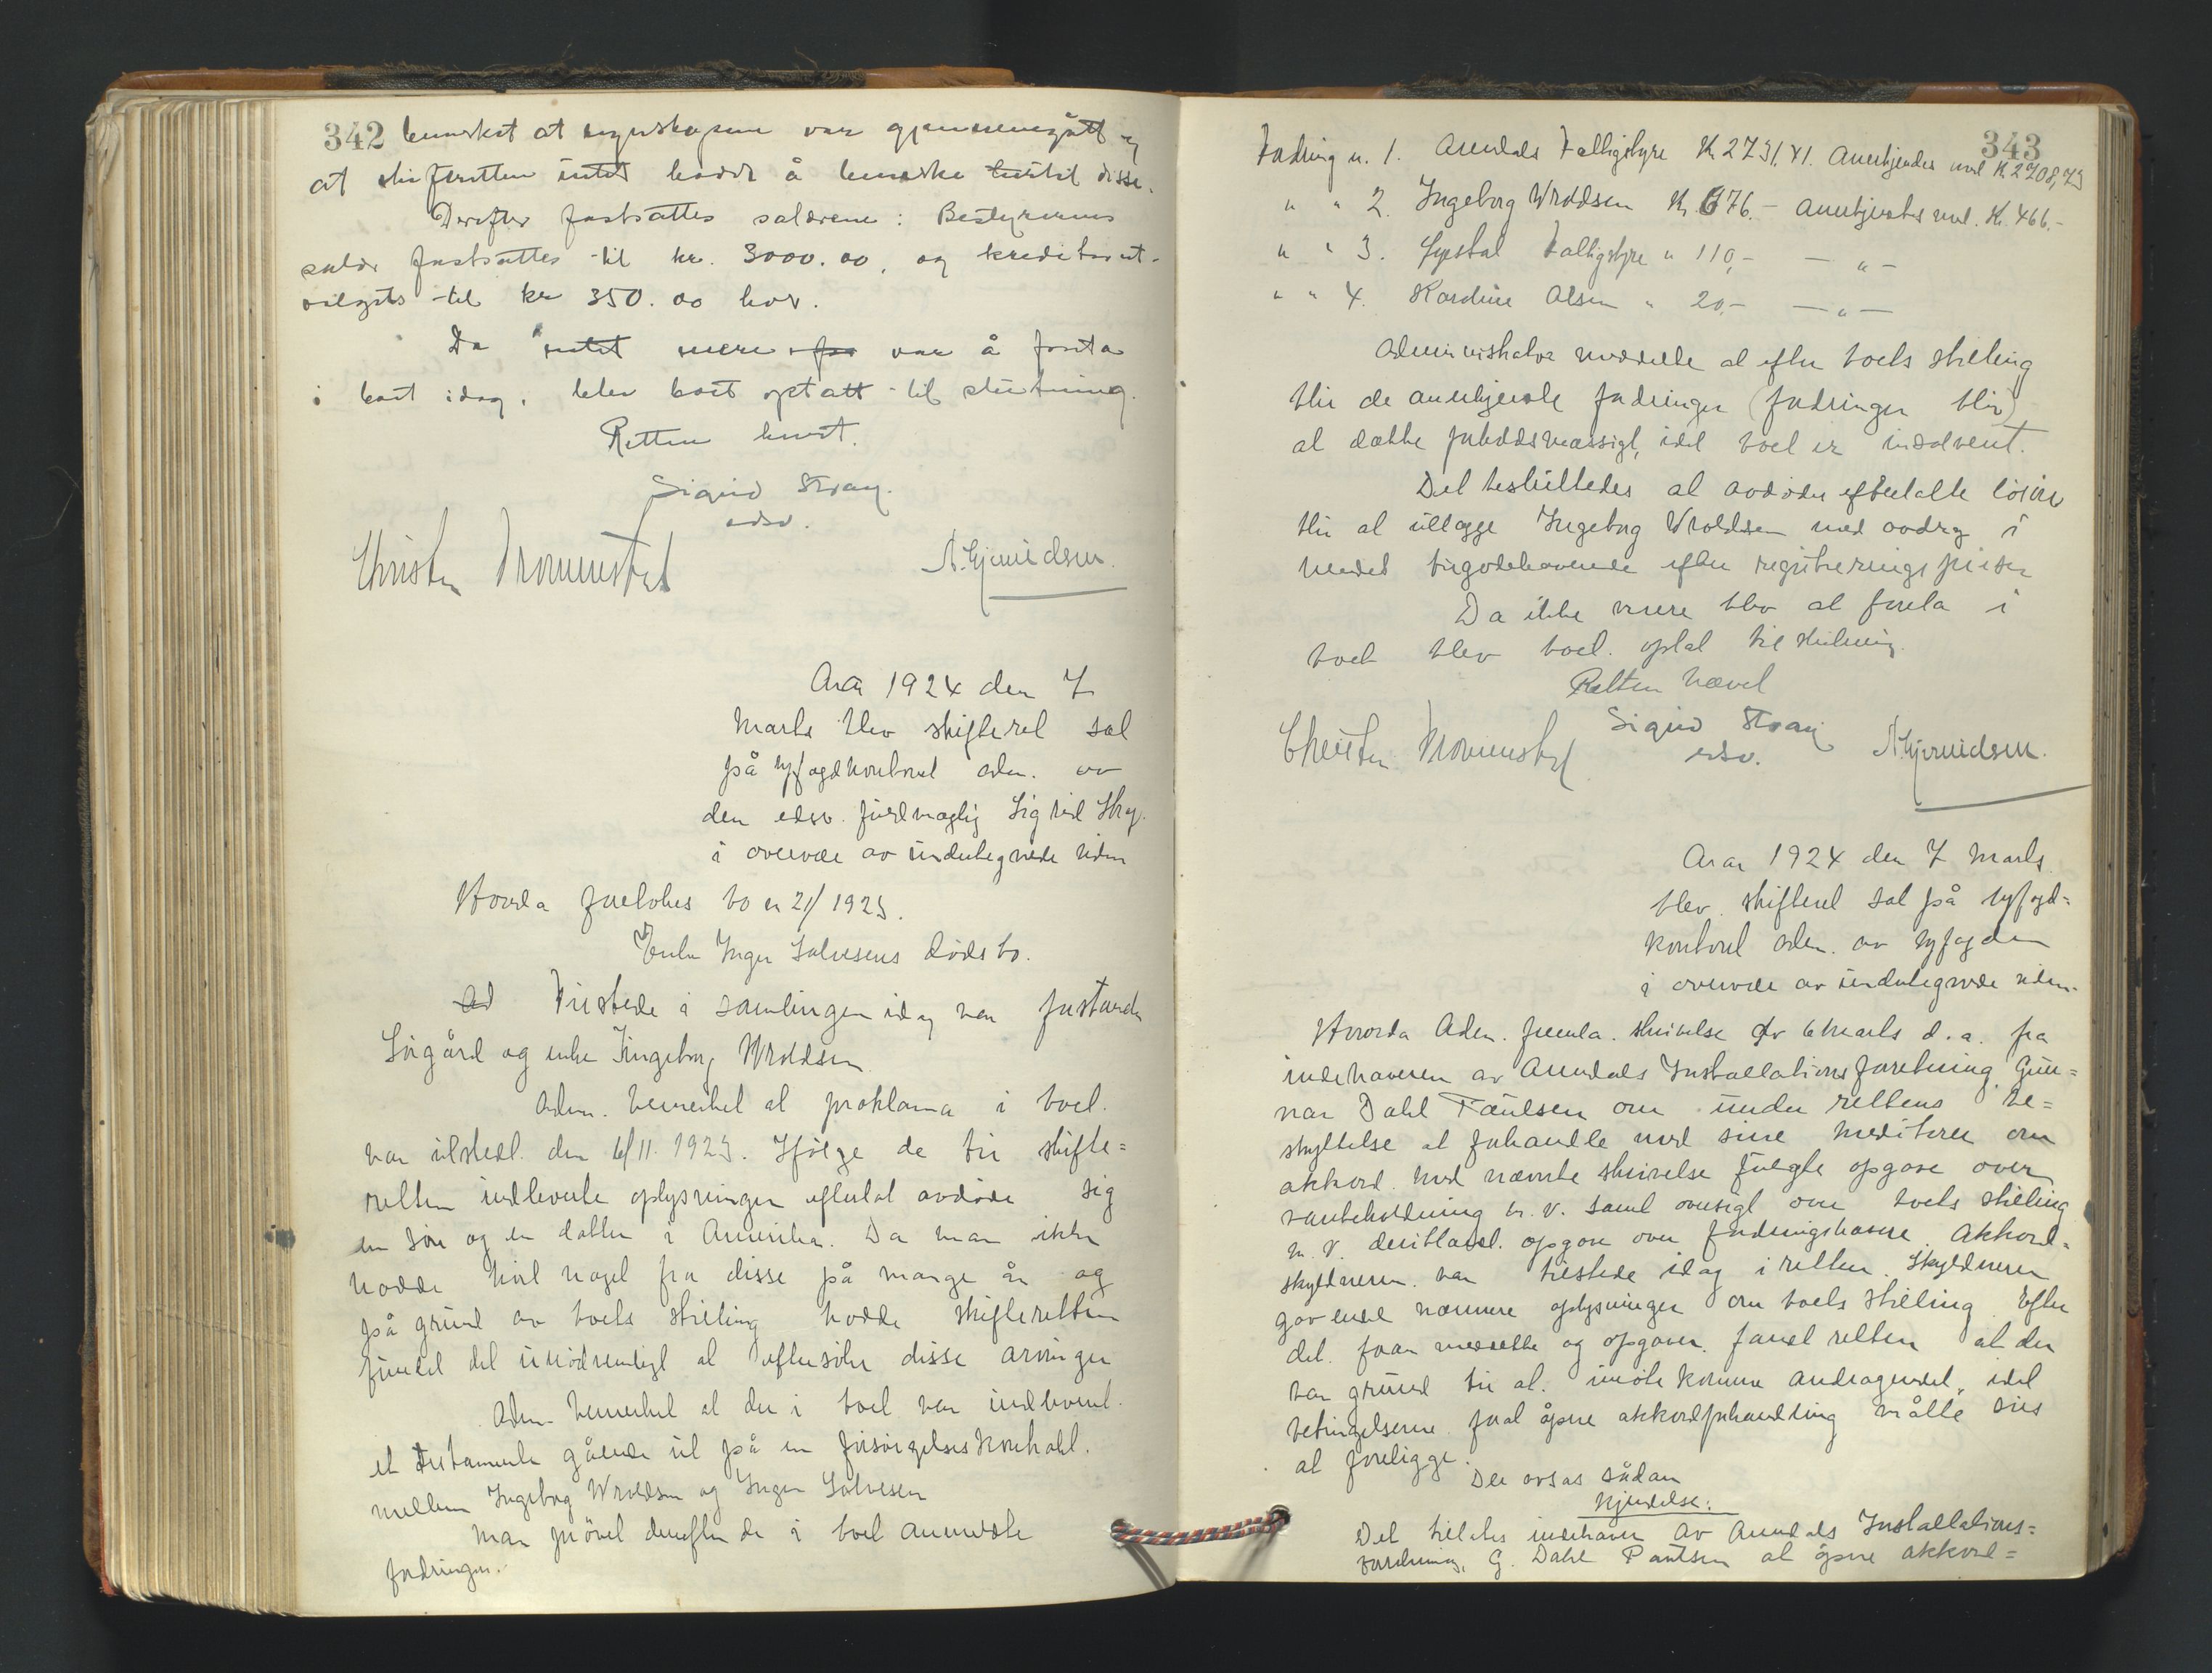 342 bemerket at regnskapene var gjennemgått og
at skifteretten intet hadde å bemerke til disse.
Derefter fastsattes salærene: Bestyrerens
salær fastsattes til kr. 3000.00, og kreditorut-
valgets til kr 350.00 hver.
Da intet mere var å foreta
i boet idag, blev boet optatt til slutning.
Retten hevet.
Sigrid Stray.
edsv.
Christen Drommestad A. Gjermundsen.
Aar 1924 den 7
marts blev skifteret sat
på byfogdkontoret adm. av
den edsv. fuldmægtig Sigrid Stray.
i overvær av undertegnede vidner
Hvorda foretokes bo nr 21/1923.
Enke Inger Salvesens dødsbo.
Ad Tilstede i samlingen idag var forstander
Sørgård og enke Ingeborg Wroldsen
Adm. bemerket at proklama i boet.
var utstedt den 6/11. 1923. Ifølge de til skifte=
retten indleverte oplysninger efterlot avdøde sig
en søn og en datter i Amerika. Da man ikke
hadde hørt noget fra disse på mange år og
på grund av boets stilling hadde skifteretten
fundet det unødvendigt at eftersøke disse arvinger
Adm. bemerket at der i boet var indlevert.
et testamente gående ut på en forsørgelseskontrakt.
mellem Ingeborg Wroldsen og Inger Salvesen
Man prøvet derefter de i boet anmeldte
fordringer.
343
Fordring n. 1. Arendals Fattigstyre Kr 2731,41. Anerkjendes med K 2708,73
" " 2. Ingeborg Wroldsen Kr. 676.- Anerkjendes med. Kr. 466.-
" " 3. Fattigstyre " 110,- - " -
" " 4. Kardine Olsen " 20,- - " -
Administrator meddelte at efter boets stilling
blir de anerkjente fordringer (fordringer blir)
at dække forholdsmæssigt, idet boet er insolvent.
Det besluttedes at avdødes efterlatte løsøre
blir at utlægge Ingeborg Wroldsen med avdrag i
hendes tilgodehavende efter registreringsprisen
Da ikke mere blev at foreta i
boet blev boet. optat til slutning
Retten hævet
Christen Drommestad Sigrid Stray A. Gjermundsen.
edsv.
Aar 1924 den 7 marts
blev skifteret sat på byfogd=
kontoret adm. av byfogden
i overvær av undertegnede vidner.
Hvorda Adm. fremla. skrivelse av 6 marts d.a. fra
indehaveren av Arendals Installationsforretning, Gun=
nar Dahl Paulsen om under rettens be=
skyttelse at forhandle med sine kreditorer om
akkord. Med nævnte skrivelse fulgte opgave over
varebeholdning m.v. samt oversigt over boets stilling
m.v. deriblandt. opgave over fordringshavere. Akkord=
skyldneren. var tilstede idag i retten. Skyldneren
gav endel nærmere oplysninger om boets stilling. Efter
det. foran meddelte og opgaver. fandt retten at der
var grund til at. imøte komme andragendet, idet
betingelserne for at åpne akkordforhandling måtte sies
at foreligge.
Der avsas sådan
Kjendelse:
Det tillates indehaver av Arendals Installations=
forretning, G. Dahl Paulsen at åpne akkord=